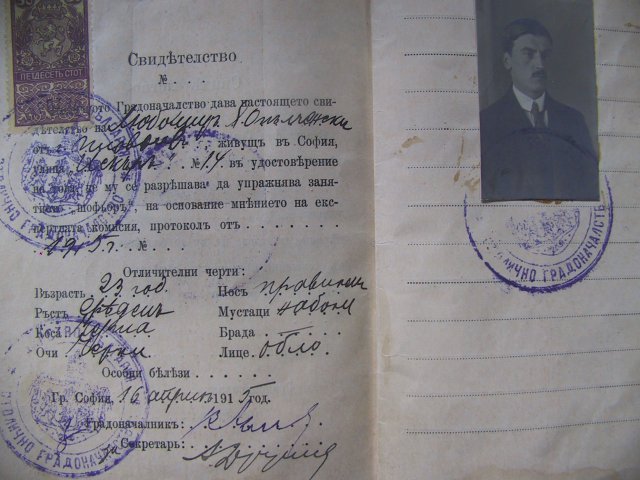 ПЕТДЕСЕТЬ СТОТ.
Свидѣтелство
№ . . .
Градоначалство дава настоящето сви-
дѣтелство на Любомиръ
отъ живущъ въ София,
улица № 14 въ удостовѣрение
на това, че му се разрѣшава да упражнява заня-
тието „шофьоръ“, на основание мнението на екс-
пертната комисия, протоколъ отъ . . . . . . .
1915 г. № . . .
Отличителни черти:
Възрасть 23 год. Носъ правиленъ
Ръстъ срѣденъ Мустаци
Коса черна Брада —
Очи черни Лице обло
Особни бѣлѣзи . . . . .
Гр. София, 16 априлъ 1915 год.
Градоначалникъ:
Секретарь:
СТОЛИЧНО ГРАДОНАЧАЛСТВО
СТОЛИЧНО ГРАДОНАЧАЛСТВО
СТОЛИЧНО ГРАДОНАЧАЛСТВО